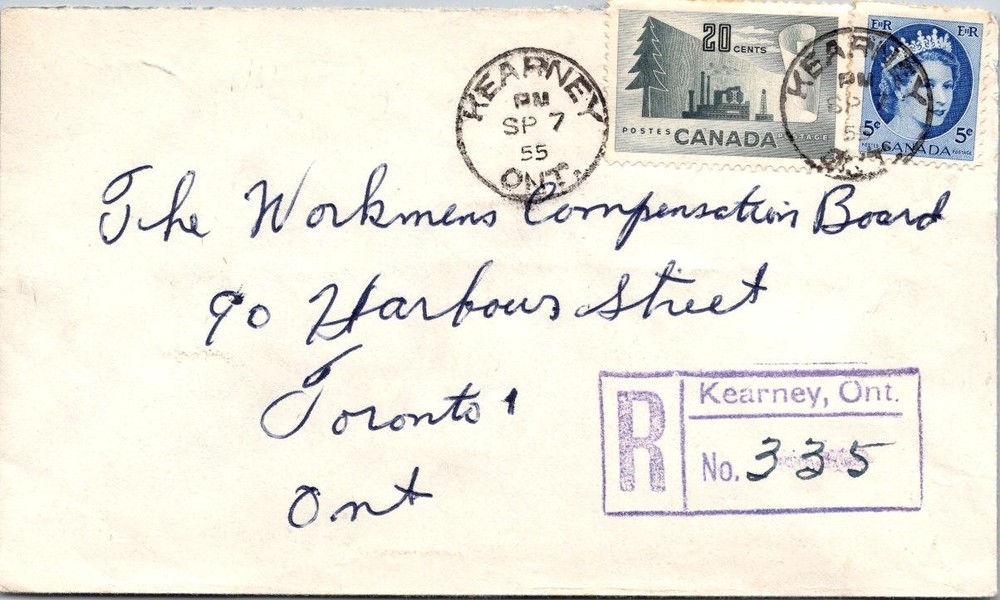 KEARNEY
PM
SP 7
55
ONT.
20 CENTS
POSTES CANADA POSTAGE
KEARNEY
PM
SP 7
55
ONT.
EIIR EIIR
5¢ 5¢
POSTES CANADA POSTAGE
The Workmens Compensation Board
90 Harbour Street
Toronto 1
Ont
R
Kearney, Ont.
No. 335